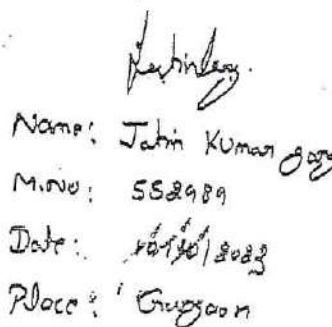 Name: Jatin Kumar Garg
M.No: 552989
Date: /2023
Place: Gurgaon